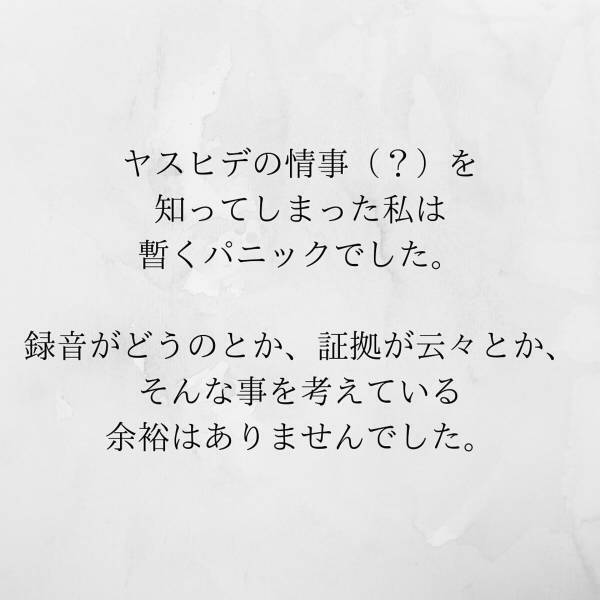 ヤスヒデの情事（？）を
知ってしまった私は
暫くパニックでした。
録音がどうのとか、証拠が云々とか、
そんな事を考えている
余裕はありませんでした。